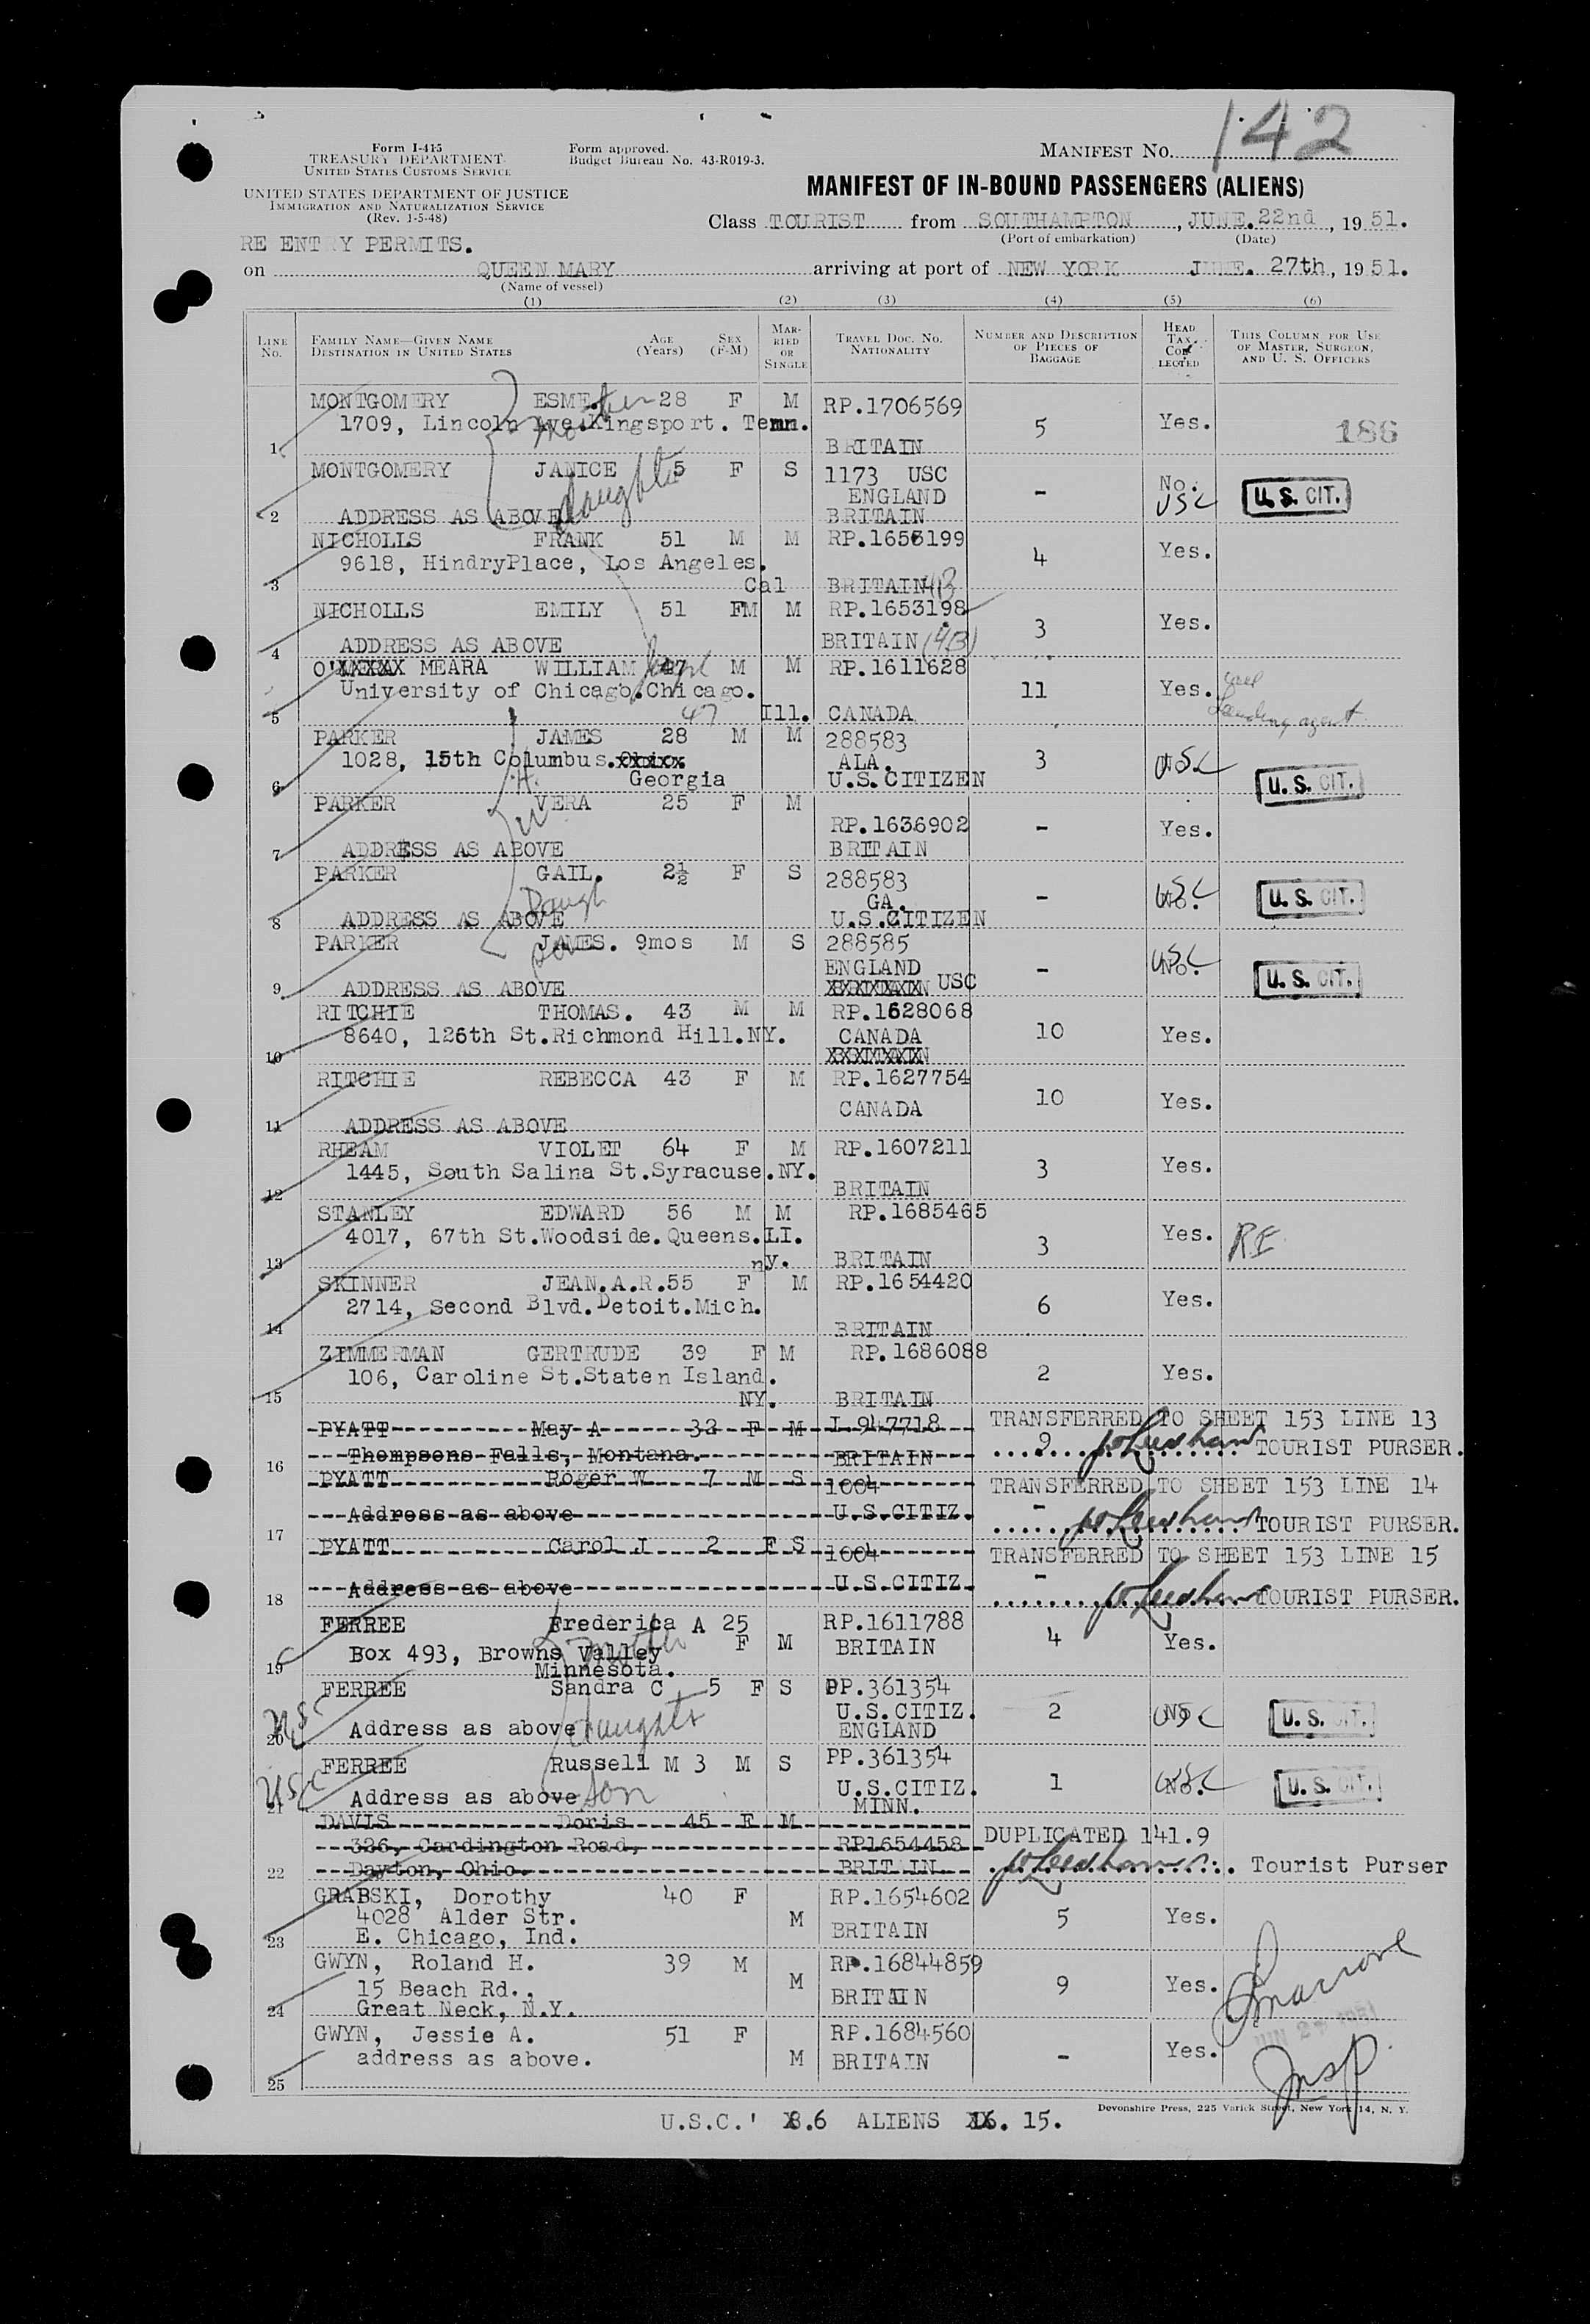 142
Form I-415
TREASURY DEPARTMENT
UNITED STATES CUSTOMS SERVICE
Form approved.
Budget Bureau No. 43-R019-3.
MANIFEST No.
UNITED STATES DEPARTMENT OF JUSTICE
IMMIGRATION AND NATURALIZATION SERVICE
(Rev. 1-5-48)
MANIFEST OF IN-BOUND PASSENGERS (ALIENS)
Class TOURIST from SOUTHAMPTON, JUNE.22nd, 1951.
(Port of embarkation) (Date)
RE ENTRY PERMITS.
on QUEEN MARY arriving at port of NEW YORK JUNE. 27th, 1951.
(Name of vessel)
(1) (2) (3) (4) (5) (6)
LINE No. FAMILY NAME—GIVEN NAME DESTINATION IN UNITED STATES AGE (Years) SEX (F-M) MARRIED OR SINGLE TRAVEL DOC. NO. NATIONALITY NUMBER AND DESCRIPTION OF PIECES OF BAGGAGE HEAD TAX COLLECTED THIS COLUMN FOR USE OF MASTER, SURGEON, AND U. S. OFFICERS
MONTGOMERY ESME. 28 F M RP.1706569
mother
1709, Lincoln Ave.Kingsport. Tenn. 5 Yes. 186
1 BRITAIN
MONTGOMERY JANICE 5 F S 1173 USC
daughter
ENGLAND - No. USC U.S. CIT.
2 ADDRESS AS ABOVE BRITAIN
NICHOLLS FRANK 51 M M RP.1653199
9618, HindryPlace, Los Angeles. 4 Yes.
3 Cal BRITAIN 4B
NICHOLLS EMILY 51 FM M RP.1653198
3 Yes.
4 ADDRESS AS ABOVE BRITAIN (4B)
O'XXXXX MEARA WILLIAM Joseph 47 M M RP.1611628
University of Chicago.Chicago. 11 Yes.
Landing agent
5 47 Ill. CANADA
PARKER JAMES 28 M M 288583
1028, 15th Columbus.Ohixx ALA. 3 USC
6 H. Georgia U.S.CITIZEN U.S. CIT.
PARKER VERA 25 F M
W RP.1636902 - Yes.
7 ADDRESS AS ABOVE BRITAIN
PARKER GAIL. 2½ F S 288583
Daugh GA. - USC U.S. CIT.
8 ADDRESS AS ABOVE U.S.CITIZEN
PARKER JAMES. 9mos M S 288585
son ENGLAND - USC No. U.S. CIT.
9 ADDRESS AS ABOVE XXXXXXX USC
RITCHIE THOMAS. 43 M M RP.1628068
8640, 126th St.Richmond Hill.NY. CANADA 10 Yes.
10
RITCHIE REBECCA 43 F M RP.1627754
CANADA 10 Yes.
11 ADDRESS AS ABOVE
RHEAM VIOLET 64 F M RP.1607211
1445, South Salina St.Syracuse.NY. 3 Yes.
12 BRITAIN
STANLEY EDWARD 56 M M RP.1685465
4017, 67th St.Woodside.Queens.LI. 3 Yes. RE
13 ny. BRITAIN
SKINNER JEAN.A.R.55 F M RP.1654420
2714, Second Blvd.Detoit.Mich. 6 Yes.
14 BRITAIN
ZIMMERMAN GERTRUDE 39 F M RP.1686088
106, Caroline St.Staten Island. 2 Yes.
15 NY. BRITAIN
PYATT May A 32 F M I.947718 TRANSFERRED TO SHEET 153 LINE 13
Thompsons Falls, Montana. BRITAIN 9 TOURIST PURSER.
16
PYATT Roger W 7 M S 1004 TRANSFERRED TO SHEET 153 LINE 14
Address as above U.S.CITIZ. - TOURIST PURSER.
17
PYATT Carol J 2 F S 1004 TRANSFERRED TO SHEET 153 LINE 15
Address as above U.S.CITIZ. - TOURIST PURSER.
18
FERREE Frederica A 25 RP.1611788
Box 493, Browns Valley F M BRITAIN 4 Yes.
mother
19 Minnesota.
FERREE Sandra C 5 F S PP.361354
USC U.S.CITIZ. 2 USC U.S. CIT.
20 Address as above daughter ENGLAND
FERREE Russell M 3 M S PP.361354
USC Address as above son U.S.CITIZ. 1 USC U.S. CIT.
21 MINN.
DAVIS Doris 45 F M
326, Cardington Road, RP1654458 DUPLICATED 141.9
22 Dayton, Ohio. BRITAIN Tourist Purser
GRABSKI, Dorothy 40 F RP.1654602
4028 Alder Str. M 5 Yes.
23 E. Chicago, Ind. BRITAIN
GWYN, Roland H. 39 M RP.16844859
15 Beach Rd., M BRITAIN 9 Yes.
24 Great Neck, N.Y.
GWYN, Jessie A. 51 F RP.1684560
address as above. M BRITAIN - Yes.
25
JUN 27 1951
Insp.
Devonshire Press, 225 Varick Street, New York 14, N. Y.
U.S.C.' 6 ALIENS 15.